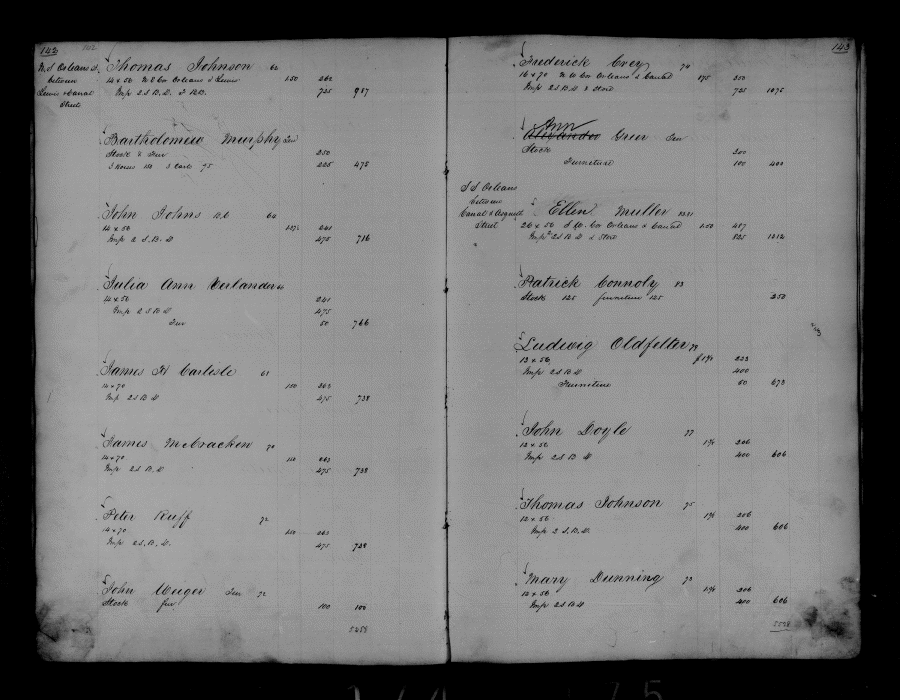 142
N. S Orleans St.
between
Lewis & Canal
Street
Thomas Johnson 62
14 x 56 N E Cor Orleans & Lewis 150 262
Imp 2 S. B. D. & B.B. 725 987
Bartholomew Murphy Ten
Stock & Fur 250
3 Horses 150 3 Carts 75 225 475
John Johns 64
14 x 56 241
Imp 2 S. B. D 475 716
Julia Ann
14 x 56 241
Imp 2 S B D 475
Fur 50 766
James H Carlisle 68
14 x 70 150 263
Imp 2 S B D 475 738
James McCracken 70
14 x 70 150 263
Imp 2 S B. D 475 738
Peter Ruff 72
14 x 70 150 263
Imp 2 S. B. D. 475 738
John Ten 72
Stock fur 100 100
143
Frederick Grey 74
16 x 70 N W Cor Orleans & Canal 175 350
Imp 2 S B D & Store 725 1075
Ann
Alexander Greer Ten
Stock 300
Furniture 100 400
S S Orleans
between
Canal & Asquith
Street
Ellen Muller
26 x 50 S W. Cor Orleans & Canal 150 487
Imp 2 S B D & Store 825 1312
Patrick Connoly 83
Stock 125 furniture 125 250
Ludwig Oldfelter 79
13 x 56 223
Imp 2 S B D 400
Furniture 50 673
John Doyle 77
12 x 56 206
Imp 2 S B D 400 606
Thomas Johnson 75
12 x 56 206
Imp 2 S. B. D. 400 606
Mary Dunning 73
12 x 56 206
Imp 2 S B D 400 606